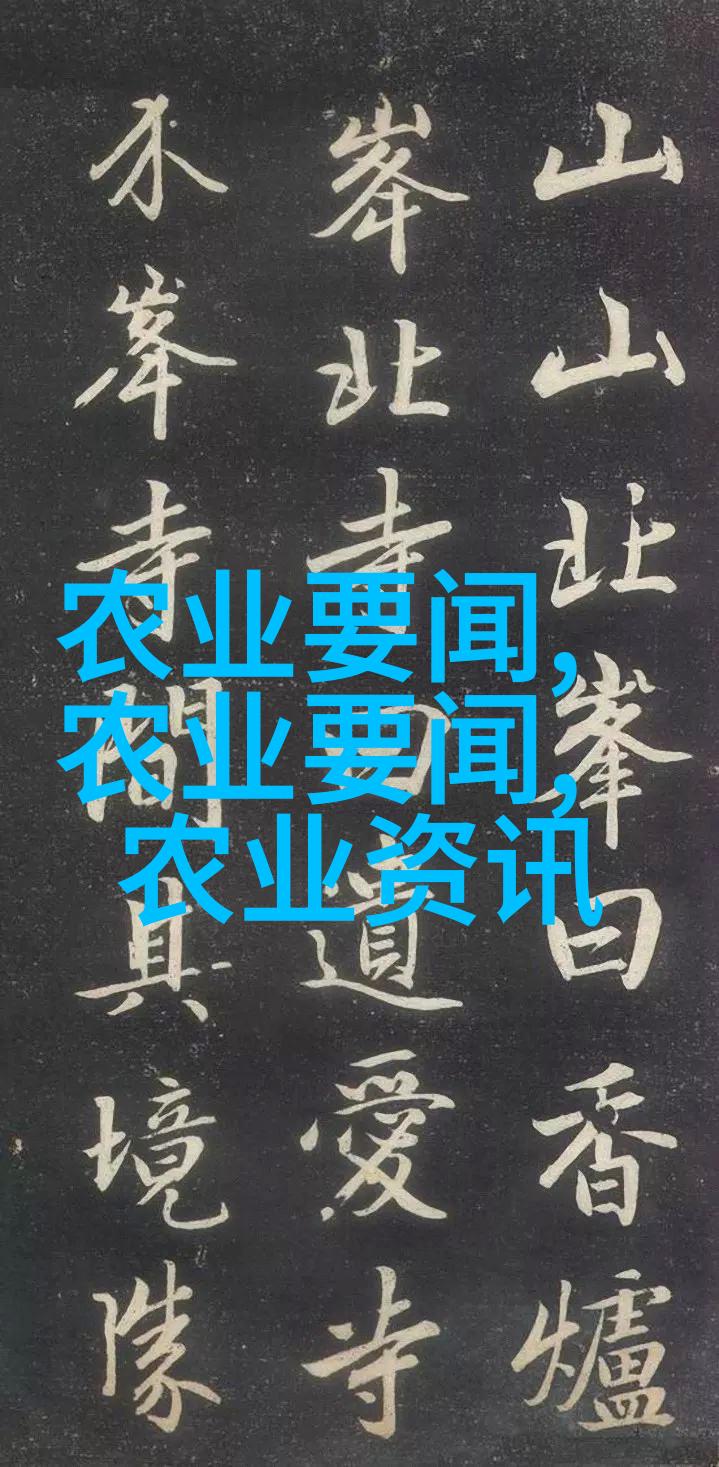 山山北峯曰香爐
峯北寺曰遺愛寺
介峯寺間其境勝
农业要闻,
农业要闻,
农业资讯